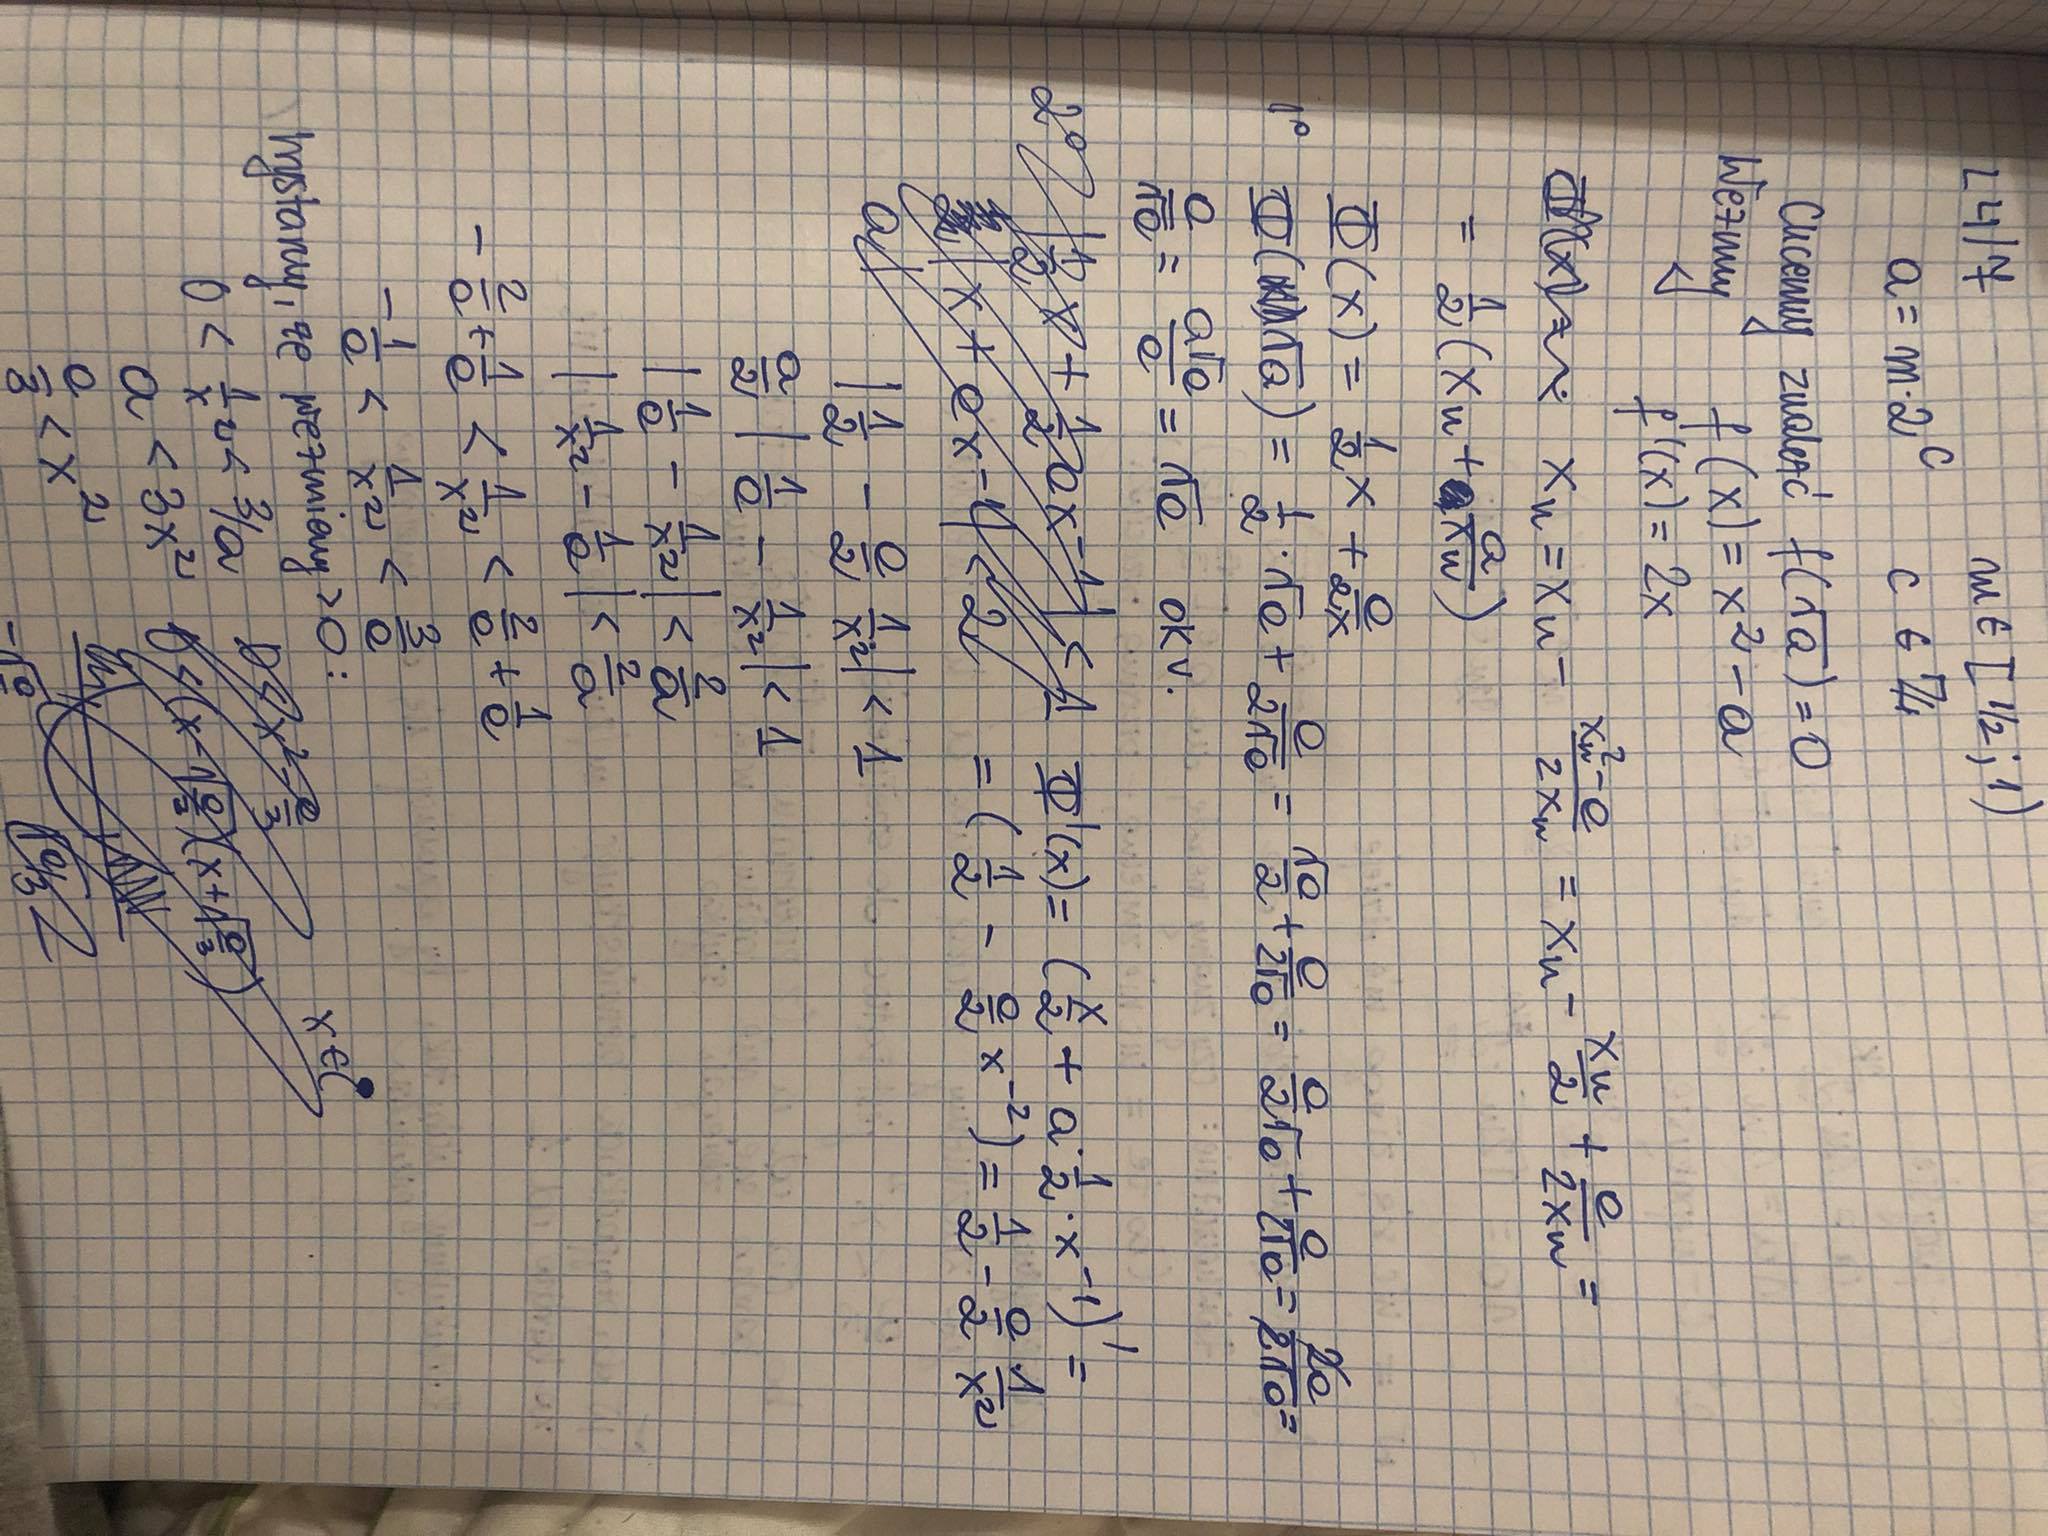 L4/7 m ∈ [1/2; 1)
a = m·2^c c ∈ ℤ
Chcemy znaleźć f(√a) = 0
Weźmy f(x) = x² - a
f'(x) = 2x
x_n = x_n - (x_n² - a)/(2x_n) = x_n - x_n/2 + a/(2x_n) =
= 1/2 (x_n + a/x_n)
Φ(x) = 1/2 x + a/(2x)
1° Φ(√a) = 1/2 · √a + a/(2√a) = √a/2 + a/(2√a) = a/(2√a) + a/(2√a) = 2a/(2√a) =
a/√a = a√a/a = √a ok v.
2° |1/2 x + 1/2 ax⁻¹| < 1 Φ'(x) = (x/2 + a · 1/2 · x⁻¹)' =
|x + ax⁻¹| < 2 = (1/2 - a/2 x⁻²) = 1/2 - a/2 1/x²
a| |1/2 - a/2 1/x²| < 1
a/2 |1/a - 1/x²| < 1
|1/a - 1/x²| < 2/a
|1/x² - 1/a| < 2/a
-2/a + 1/a < 1/x² < 2/a + 1/a
-1/a < 1/x² < 3/a
Wystarczy, że weźmiemy >0:
x ∈ (
0 < 1/x² < 3/a 0 < x² - a/3
a < 3x² 0 < (x - √(a/3))(x + √(a/3))
a/3 < x² √(a/3)